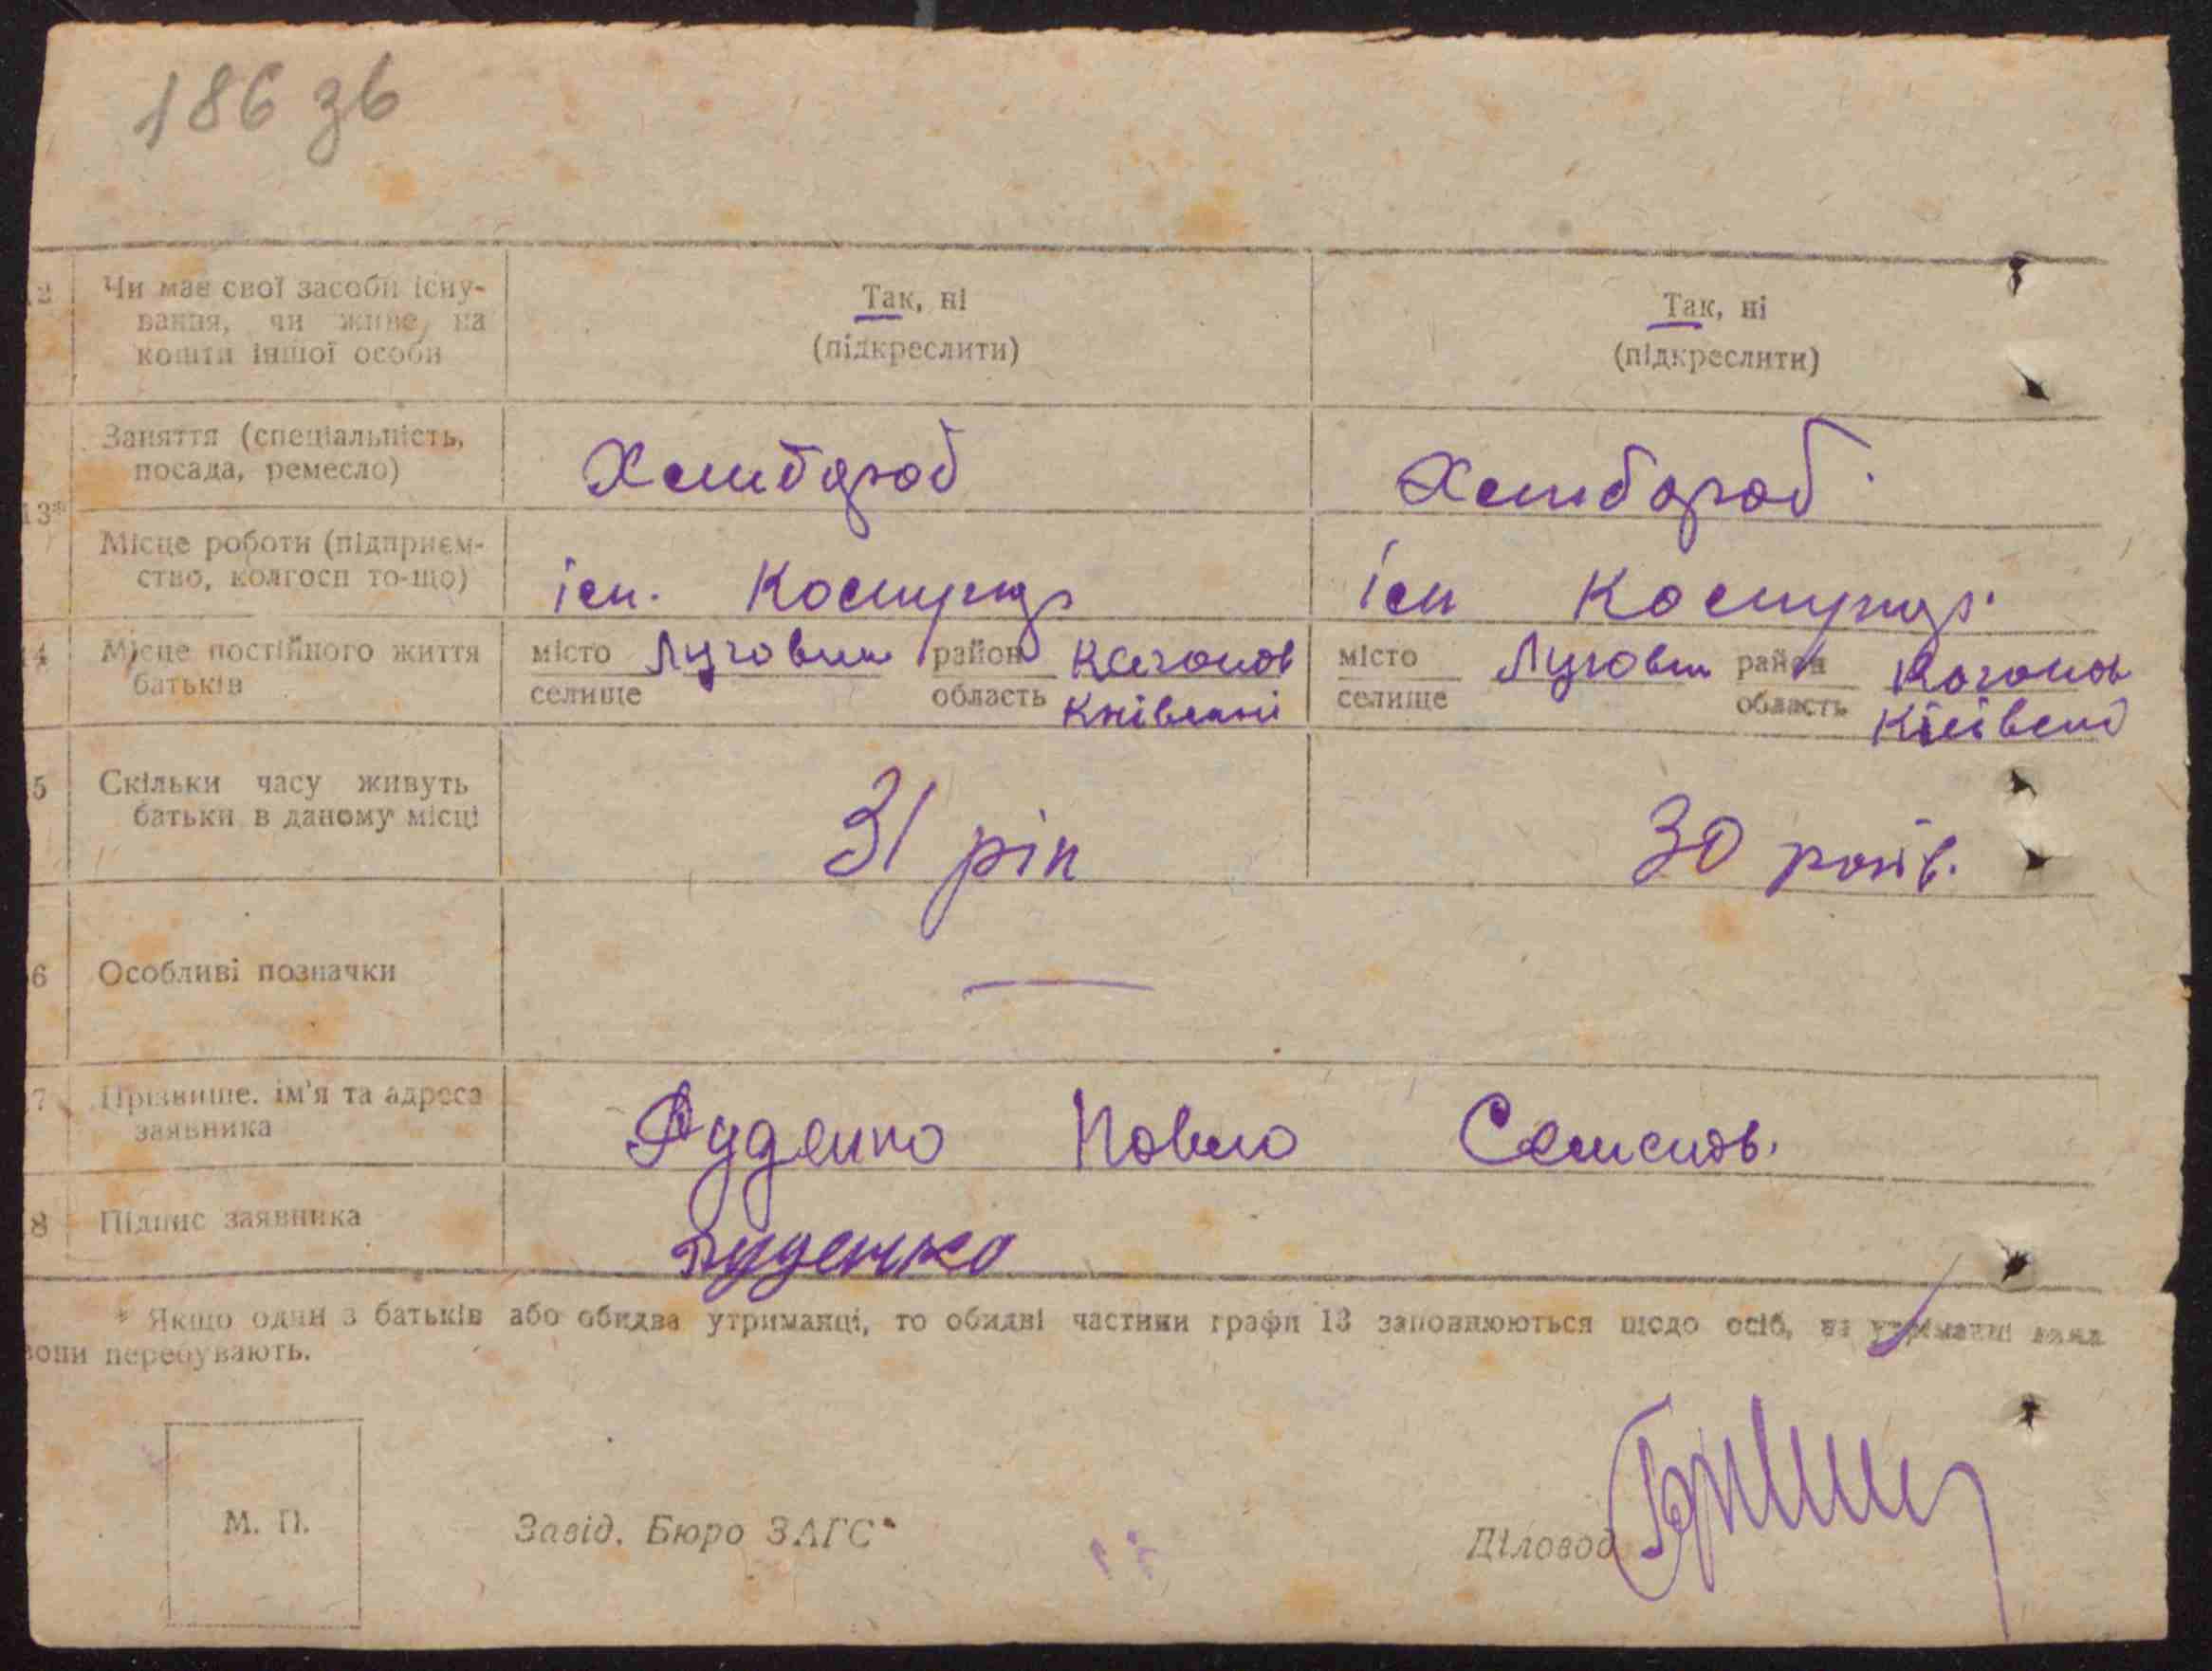 186 зв
12 Чи має свої засоби існу-
вання, чи живе на
кошти іншої особи
Так, ні
(підкреслити)
Так, ні
(підкреслити)
Заняття (спеціальність,
посада, ремесло)
Хлибороб
Хлибороб
13*
Місце роботи (підприєм-
ство, колгосп то-що)
ім.
ім
14 Місце постійного життя
батьків
місто Луговик район Кагонов
селище область Київської
місто Луговик район Кагонов
селище область Київської
5 Скільки часу живуть
батьки в даному місці
31 рік
30 років.
6 Особливі позначки —
7 Прізвище, ім'я та адреса
заявника
Руденко Павло Семенов.
8 Підпис заявника
Руденко
* Якщо один з батьків або обидва утриманці, то обидві частини графи 13 заповнюються щодо осіб, на утриманні яких
вони перебувають.
М. П.
Завід. Бюро ЗАГС
Діловод